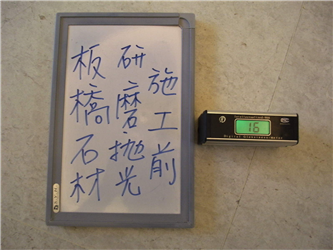 施工前
研磨拋光
板橋石材
16